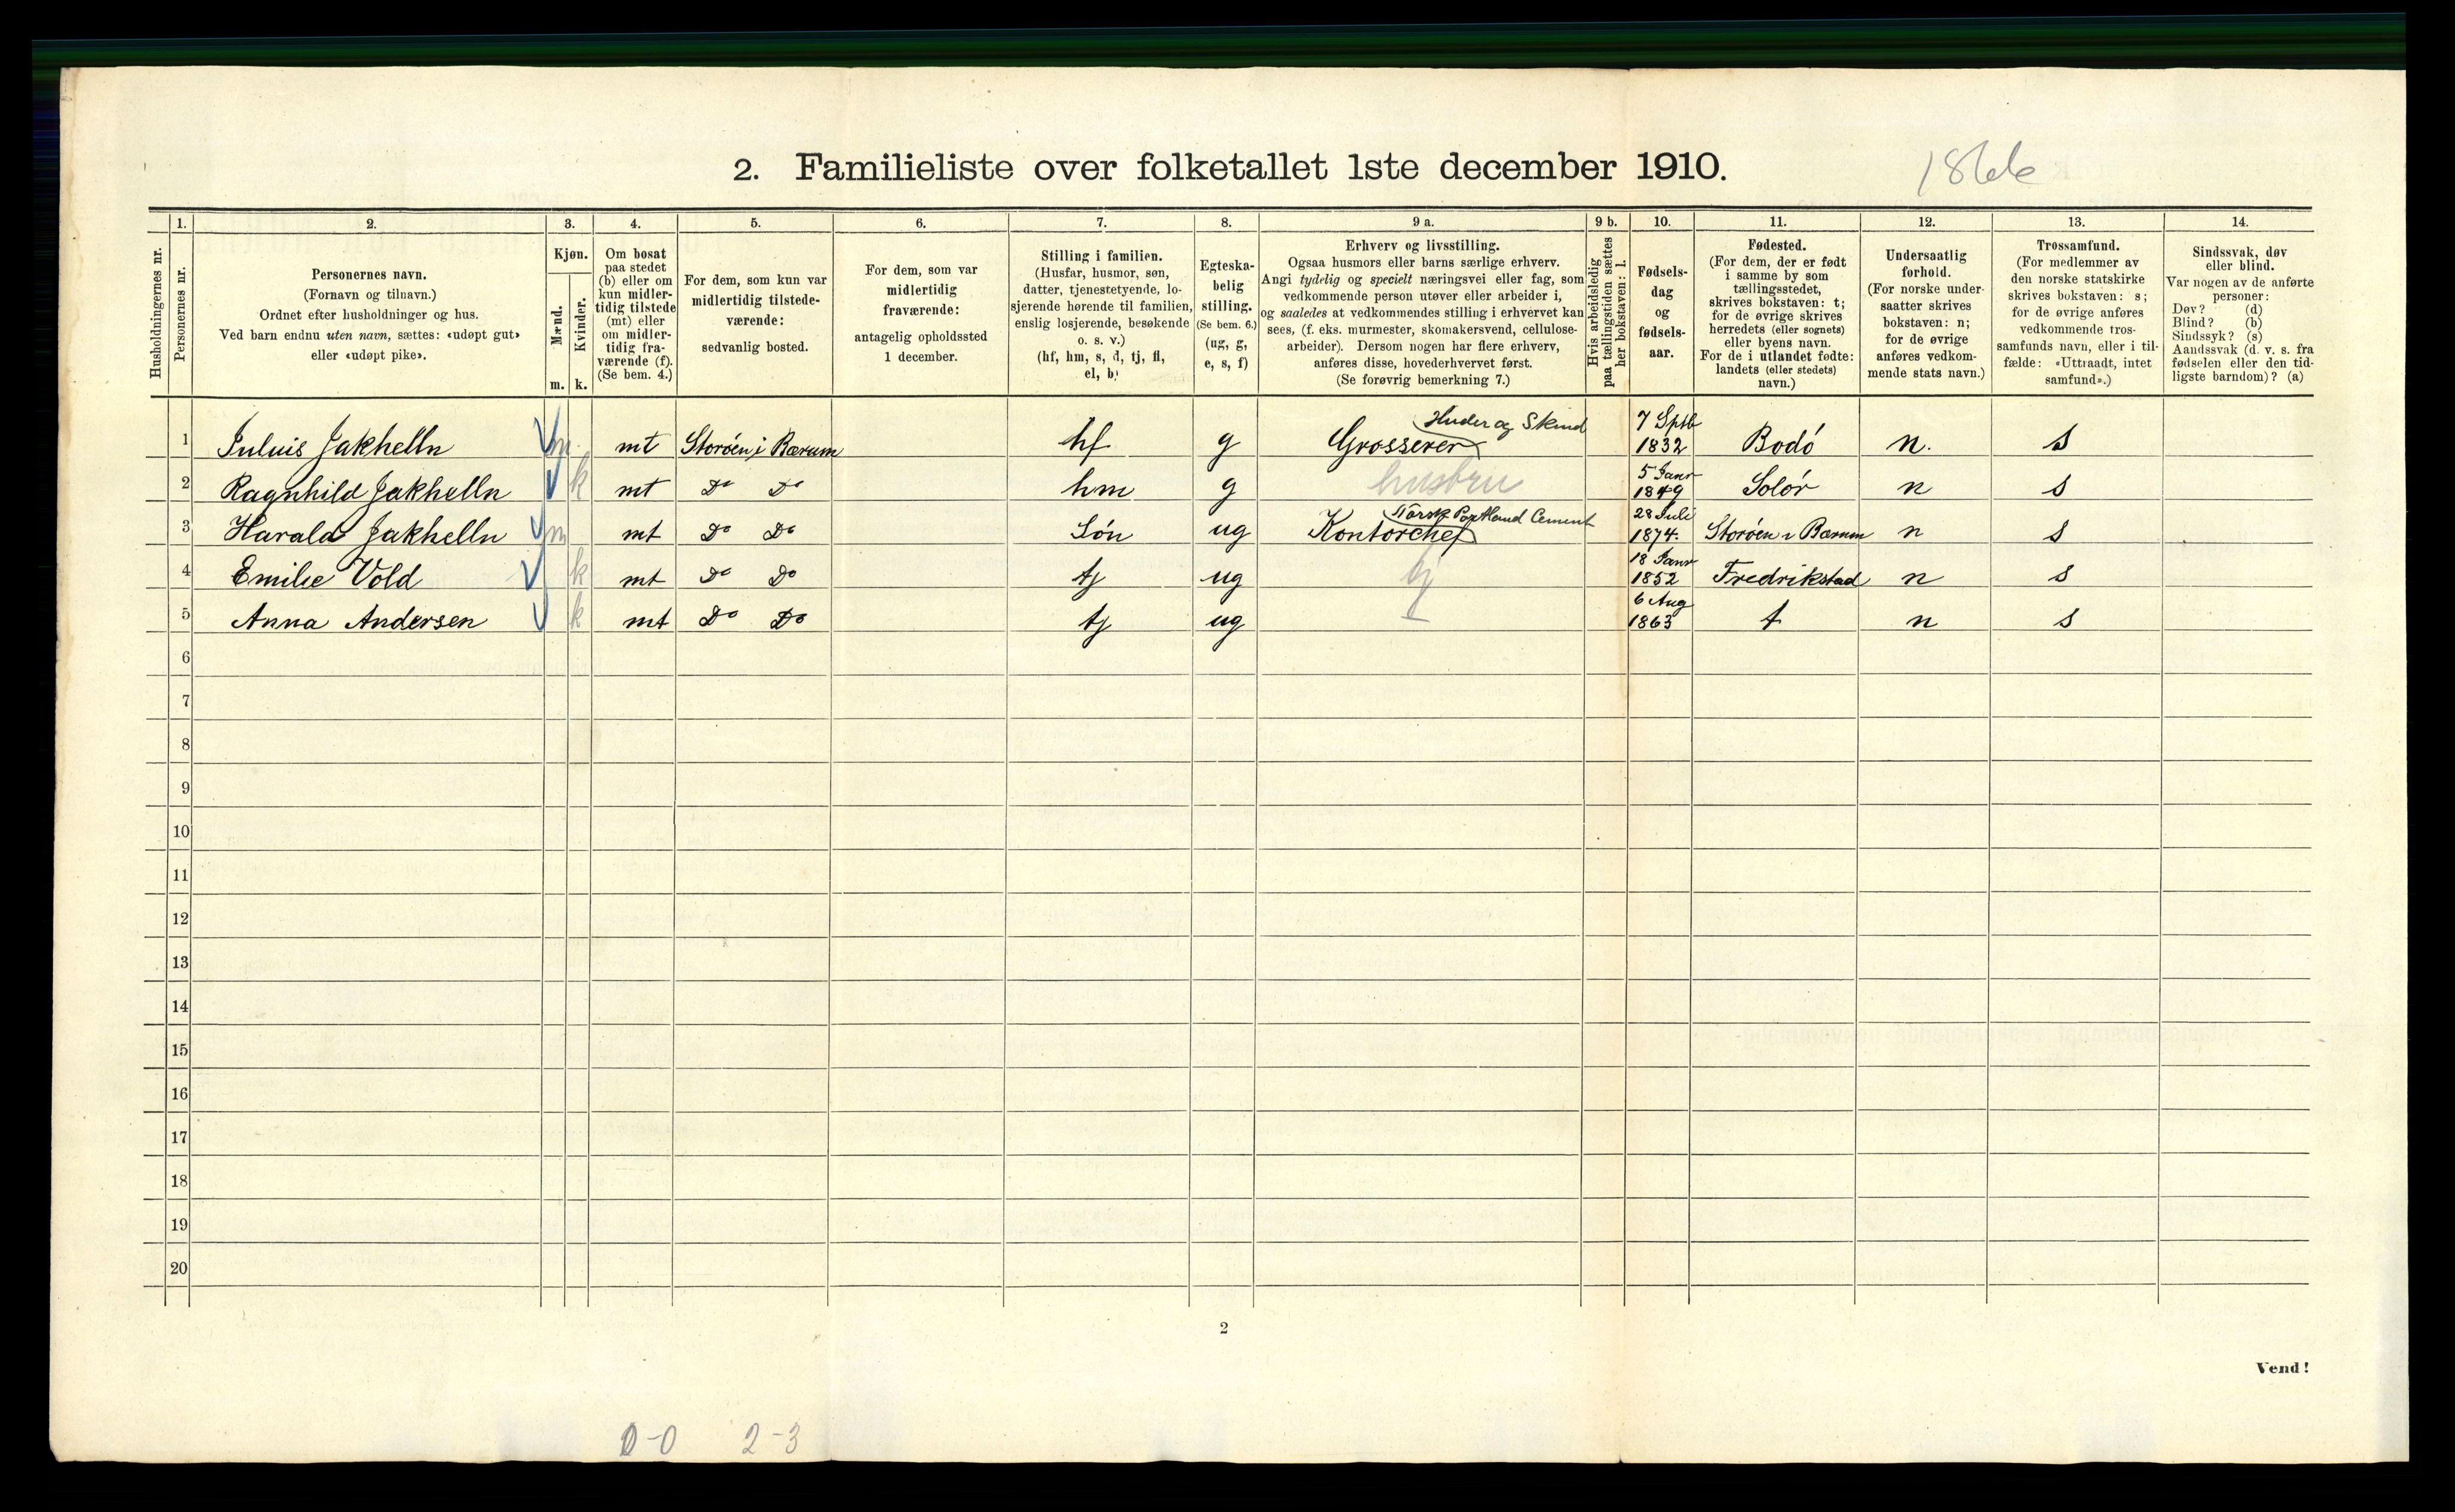 2. Familieliste over folketallet 1ste december 1910.
1866
Husholdningernes nr.
1.
Personernes nr.
2.
Personernes navn.
(Fornavn og tilnavn.)
Ordnet efter husholdninger og hus.
Ved barn endnu uten navn, sættes: «udøpt gut»
eller «udøpt pike».
3.
Kjøn.
Mænd.
Kvinder.
m. k.
4.
Om bosat
paa stedet
(b) eller om
kun midler-
tidig tilstede
(mt) eller
om midler-
tidig fra-
værende (f).
(Se bem. 4.)
5.
For dem, som kun var
midlertidig tilstede-
værende:
sedvanlig bosted.
6.
For dem, som var
midlertidig
fraværende:
antagelig opholdssted
1 december.
7.
Stilling i familien.
(Husfar, husmor, søn,
datter, tjenestetyende, lo-
sjerende hørende til familien,
enslig losjerende, besøkende
o. s. v.)
(hf, hm, s, d, tj, fl,
el, b)
8.
Egteska-
belig
stilling.
(Se bem. 6.)
(ug, g,
e, s, f)
9 a.
Erhverv og livsstilling.
Ogsaa husmors eller barns særlige erhverv.
Angi tydelig og specielt næringsvei eller fag, som
vedkommende person utøver eller arbeider i,
og saaledes at vedkommendes stilling i erhvervet kan
sees, (f. eks. murmester, skomakersvend, cellulose-
arbeider). Dersom nogen har flere erhverv,
anføres disse, hovederhvervet først.
(Se forøvrig bemerkning 7.)
9 b.
Hvis arbeidsledig
paa tællingstiden sættes
her bokstaven: l.
10.
Fødsels-
dag
og
fødsels-
aar.
11.
Fødested.
(For dem, der er født
i samme by som
tællingsstedet,
skrives bokstaven: t;
for de øvrige skrives
herredets (eller sognets)
eller byens navn.
For de i utlandet fødte:
landets (eller stedets)
navn.)
12.
Undersaatlig
forhold.
(For norske under-
saatter skrives
bokstaven: n;
for de øvrige
anføres vedkom-
mende stats navn.)
13.
Trossamfund.
(For medlemmer av
den norske statskirke
skrives bokstaven: s;
for de øvrige anføres
vedkommende tros-
samfunds navn, eller i til-
fælde: «Uttraadt, intet
samfund».)
14.
Sindssvak, døv
eller blind.
Var nogen av de anførte
personer:
Døv? (d)
Blind? (b)
Sindssyk? (s)
Aandssvak (d. v. s. fra
fødselen eller den tid-
ligste barndom)? (a)
Huder og Skind 7 Septb
1 Julius Jakhelln m mt Storøen i Bærum hf g Grosserer 1832 Bodó n. s
5 Janr
2 Ragnhild Jakhelln k mt Do Do hm g husbru 1849 Solór n s
Norsk Portland Cement 28 Juli
3 Harald Jakhelln m mt Do Do Són ug Kontorchef 1874. Storøen i Bærum n s
18 Janr
4 Emilie Vold k mt Do Do tj ug tj 1852 Fredrikstad n s
6 Aug
5 Anna Andersen k mt Do Do tj ug 1863 t n s
6
7
8
9
10
11
12
13
14
15
16
17
18
19
20
2
Vend!
0-0 2-3